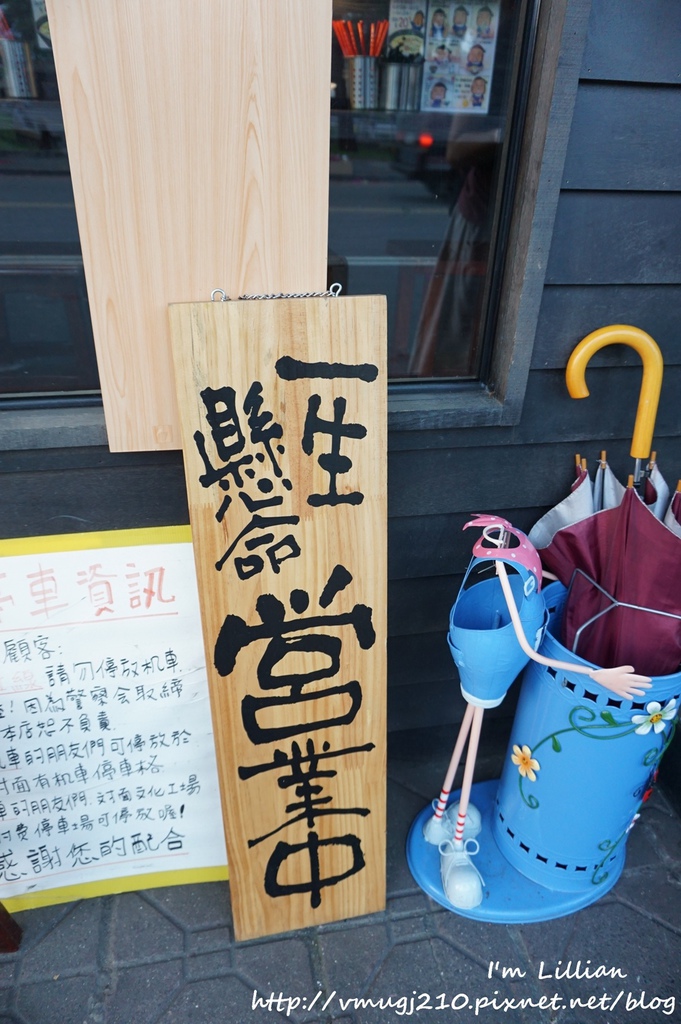 一生
懸命
營業中
停車資訊
顧客:
請勿停放机車
! 因為警察会取締
本店恕不負責.
机車的朋友們可停放於
对面有机車停車格.
車的朋友們.对面文化工場
付费停車場可停放喔!
感謝您的配合
I'm Lillian
http://vmugj210.pixnet.net/blog